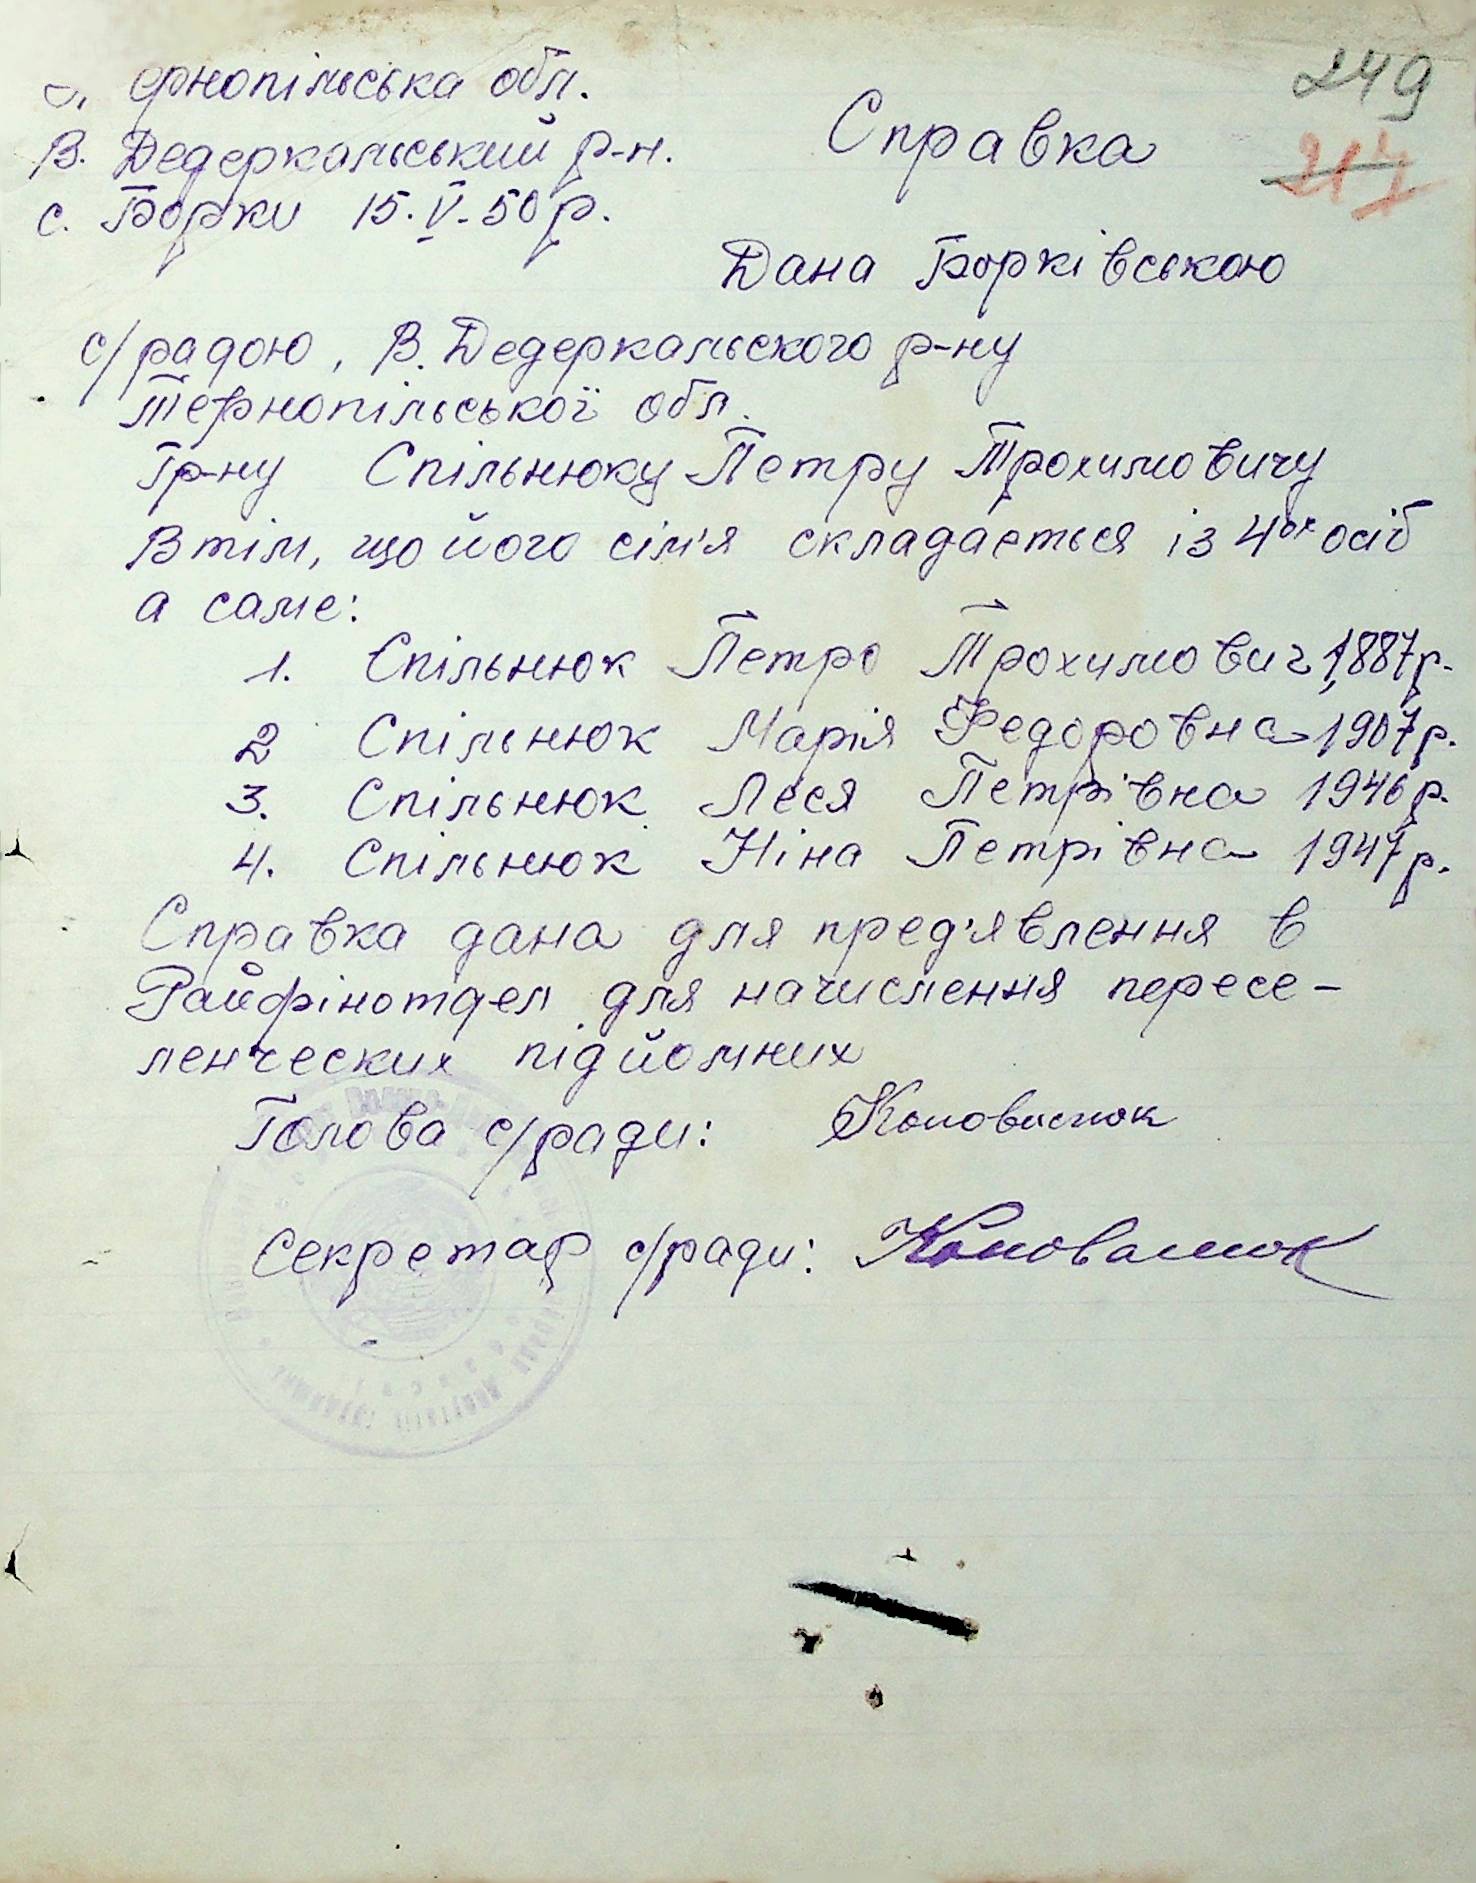 ернопільська обл.
249
В. Дедеркальський р-н.
Справка
217
с. Борки 15.V.50 р.
Дана Борківською
с/радою, В. Дедеркальского р-ну
Тернопільської обл.
Гр-ну Спільнюку Петру Трохимовичу
В тім, що його сім'я складається із 4ох осіб
а саме:
1. Спільнюк Петро Трохимович 1887 р.
2 Спільнюк Марія Федоровна 1907 р.
3. Спільнюк Леся Петрівна 1946 р.
4. Спільнюк Ніна Петрівна 1947 р.
Справка дана для пред'явлення в
Райфінотдел для начислення пересе-
ленческих підйомних
Голова с/ради:
Секретар с/ради: